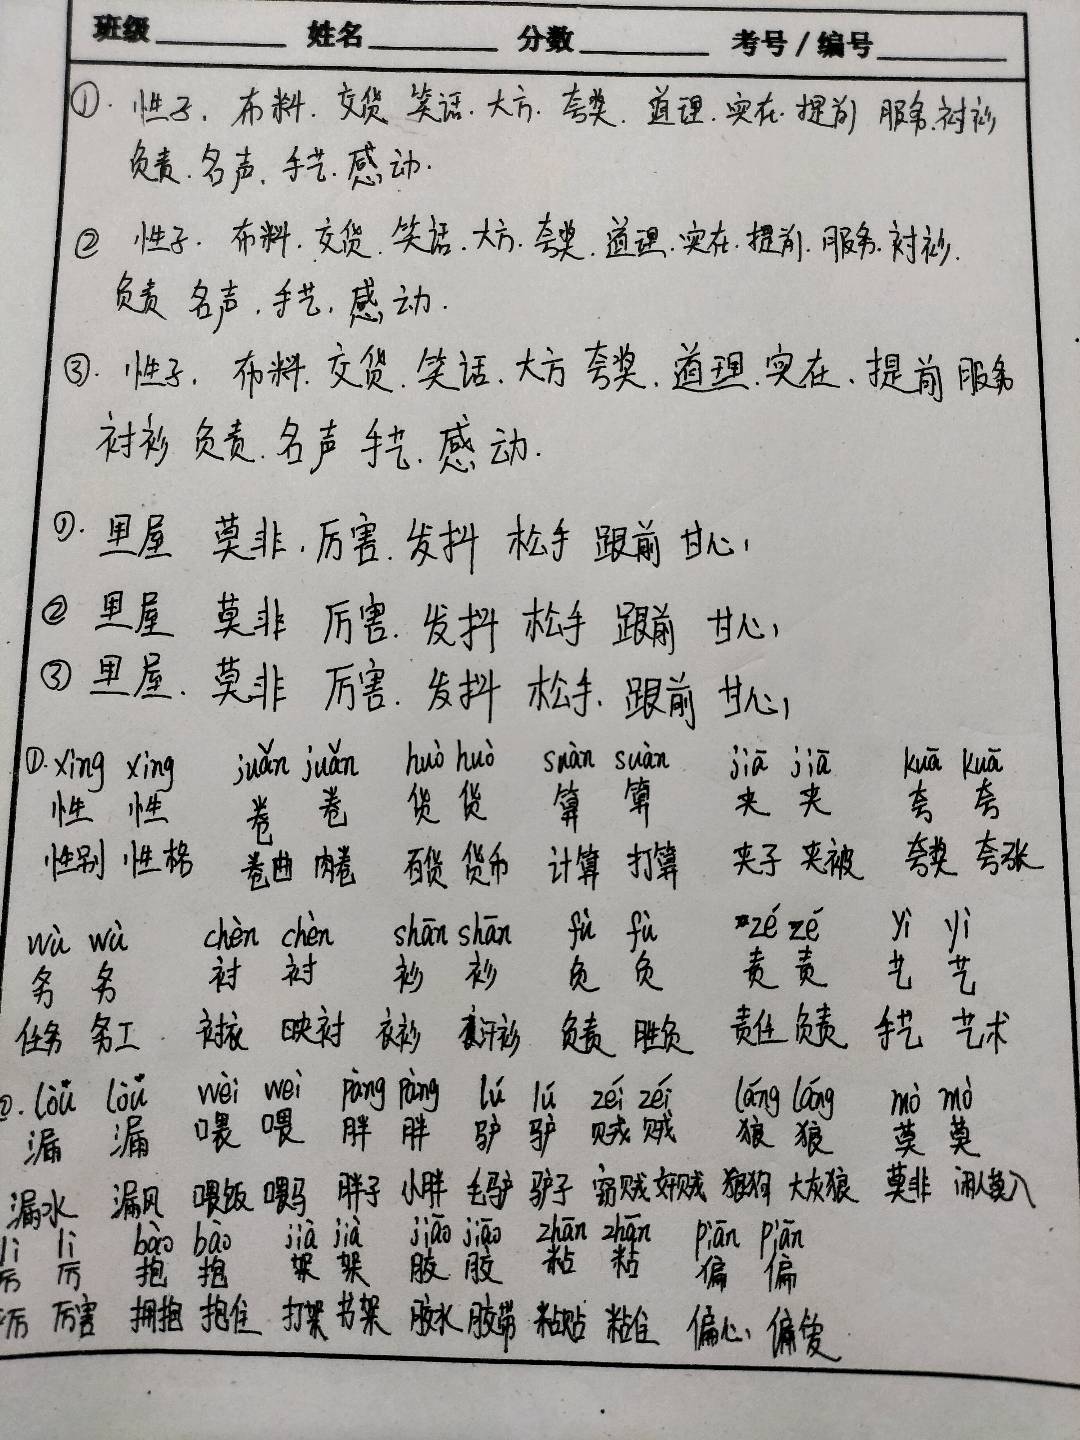 班级 姓名 分数 考号/编号
①. 性子. 布料. 交货 笑话. 大方. 夸奖. 道理. 实在. 提前 服务. 衬衫
负责. 名声. 手艺. 感动.
② 性子. 布料. 交货. 笑话. 大方. 夸奖. 道理. 实在. 提前. 服务. 衬衫.
负责 名声. 手艺. 感动.
③. 性子. 布料. 交货. 笑话. 大方 夸奖. 道理. 实在. 提前 服务
衬衫 负责. 名声 手艺. 感动.
①. 里屋 莫非. 厉害. 发抖 松手 跟前 甘心
② 里屋 莫非 厉害. 发抖 松手 跟前 甘心
③ 里屋. 莫非 厉害. 发抖 松手. 跟前 甘心
①. xìng xìng juǎn juǎn huò huò suàn suàn jiā jiā kuā kuā
性 性 卷 卷 货 货 算 算 夹 夹 夸 夸
性别 性格 卷曲 肉卷 百货 货币 计算 打算 夹子 夹被 夸奖 夸张
wù wù chèn chèn shān shān fù fù zé zé yì yì
务 务 衬 衬 衫 衫 负 负 责 责 艺 艺
任务 务工 衬衣 映衬 衣衫 汗衫 负责 胜负 责任 负责 手艺 艺术
②. lòu lòu wèi wèi pàng pàng lǘ lǘ zéi zéi láng láng mò mò
漏 漏 喂 喂 胖 胖 驴 驴 贼 贼 狼 狼 莫 莫
漏水 漏风 喂饭 喂马 胖子 小胖 毛驴 驴子 窃贼 奸贼 狼狗 大灰狼 莫非 闲人莫入
lì lì bào bào jià jià jiāo jiāo zhān zhān piān piān
厉 厉 抱 抱 架 架 胶 胶 粘 粘 偏 偏
厉 厉害 拥抱 抱住 打架 书架 胶水 胶带 粘贴 粘住 偏心 偏爱